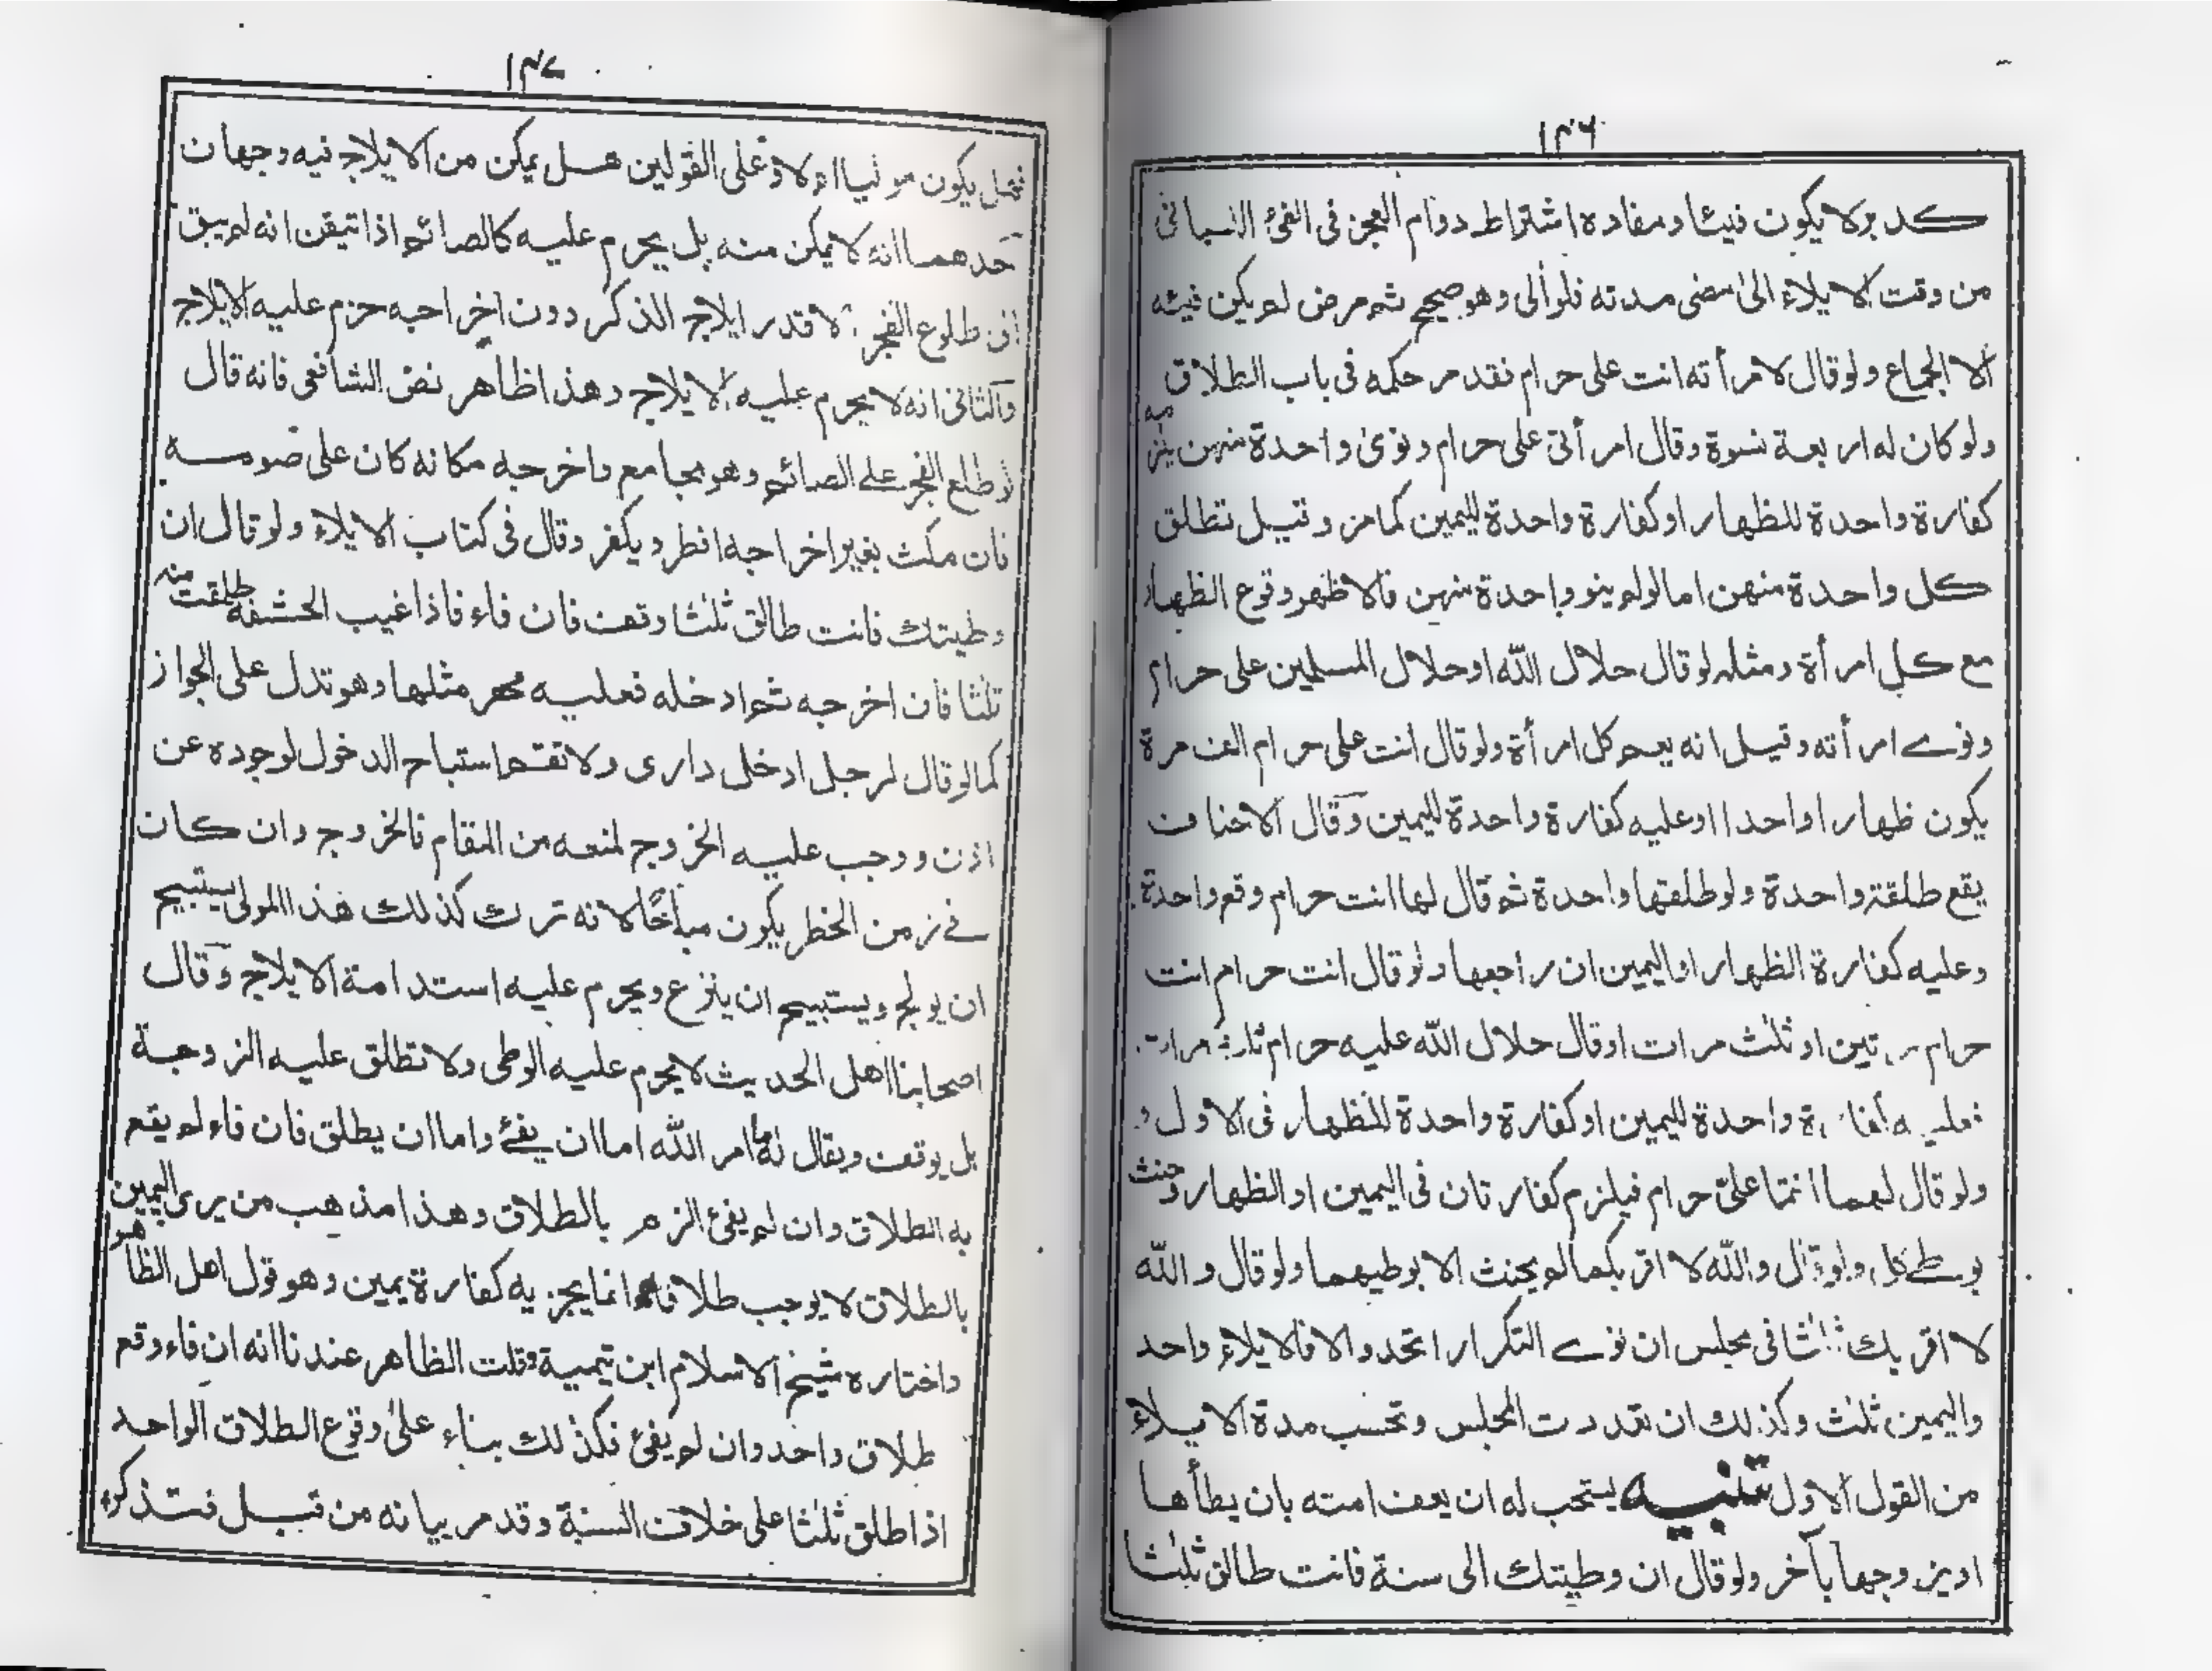 ١٣٦
كد برلا يكون فيئا ومفاده اشتراط دوام العجز فى الفئ اللسانى
من وقت الايلاء الىٰ مضى مدته فلو اٰلى وهو صحيح ثم مرض لم يكن فيئه
الا الجماع ولو قال لامرأته انت على حرام فقد مر حكمه فى باب الطلاق
ولو كان له اربعة نسوة وقال امرأتى على حرام ونوىٰ واحدة منهن يلزمه
كفارة واحدة للظهار او كفارة واحدة لليمين كما مر وقيل تطلق
كل واحدة منهن اما لو لم ينو واحدة منهن فالاظهر وقوع الظهار
مع كل امرأة ومثله لو قال حلال الله او حلال المسلمين على حرام
ونوے امرأته وقيل انه يعم كل امرأة ولو قال انت على حرام الف مرة
يكون ظهارا واحدا او عليه كفارة واحدة لليمين وقال الاحناف
يقع طلقة واحدة ولو طلقها واحدة ثم قال لها انت حرام وقع واحدة
وعليه كفارة الظهار او اليمين ان راجعها ولو قال انت حرام انت
حرام مرتين او ثلٰث مرات او قال حلال الله عليه حرام ثلٰث مرات
فعليه كفارة واحدة لليمين او كفارة واحدة للظهار فى الاول و
ولو قال لهما انتما علىّ حرام فيلزم كفارتان فى اليمين او الظهار وحنث
بوطے كل ولو قال والله لا اقربكما لم يحنث الا بوطيهما ولو قال والله
لا اقربك ثلٰثا فى مجلس ان نوے التكرار اتحد والا فالايلاء واحد
واليمين ثلٰث وكذلك ان تعددت المجلس وتحسب مدة الايلاء
من القول الاول تنبيه يستحب له ان يعف امته بان يطأها
او يزوجها بآخر ولو قال ان وطيتك الى سنة فانت طالق ثلٰثا
١٣٧
فهل يكون موليا ام لا وعلى القولين هل يمكن من الايلاج فيه وجهان
احدهما انه لا يمكن منه بل يحرم عليه كالصائم اذا تيقن انه لم يبق
الى طلوع الفجر الا قدر ايلاج الذكر دون اخراجه حرم عليه الايلاج
والثانى انه لا يحرم عليه الايلاج وهذا ظاهر نص الشافعى فانه قال
لو طلع الفجر على الصائم وهو مجامع واخرجه مكانه كان على صومه
فان مكث بغير اخراجه افطر ويكفر وقال فى كتاب الايلاء ولو قال ان
وطيتك فانت طالق ثلٰثا وقف فان فاء فاذا غيب الحشفة طلقت منه
ثلٰثا فان اخرجه ثم ادخله فعليه مهر مثلها وهو تدل على الجواز
كما لو قال لرجل ادخل دارى ولا تقم استباح الدخول لوجوده عن
اذن ووجب عليه الخروج لمنعه من المقام فالخروج وان كان
فے زمن الخطر يكون مباحًا لانه ترك كذلك هذا المولى يستبيح
ان يولج ويستبيح ان ينزع ويحرم عليه استدامة الايلاج وقال
اصحابنا اهل الحديث لا يحرم عليه الوطى ولا تطلق عليه الزوجة
بل يوقف ويقال له ما امر الله اما ان يفئ واما ان يطلق فان فاء لم يقع
به الطلاق وان لم يفئ الزم بالطلاق وهذا مذهب من يرى اليمين
بالطلاق لا يوجب طلاقا وانما يجزيه كفارة يمين وهو قول اهل الظاهر
واختاره شيخ الاسلام ابن تيمية قلت الظاهر عندنا انه ان فاء وقع
طلاق واحد وان لم يفئ فكذلك بناء علىٰ وقوع الطلاق الواحد
اذا طلق ثلٰثا على خلاف السنة وقد مر بيانه من قبل فتذكره